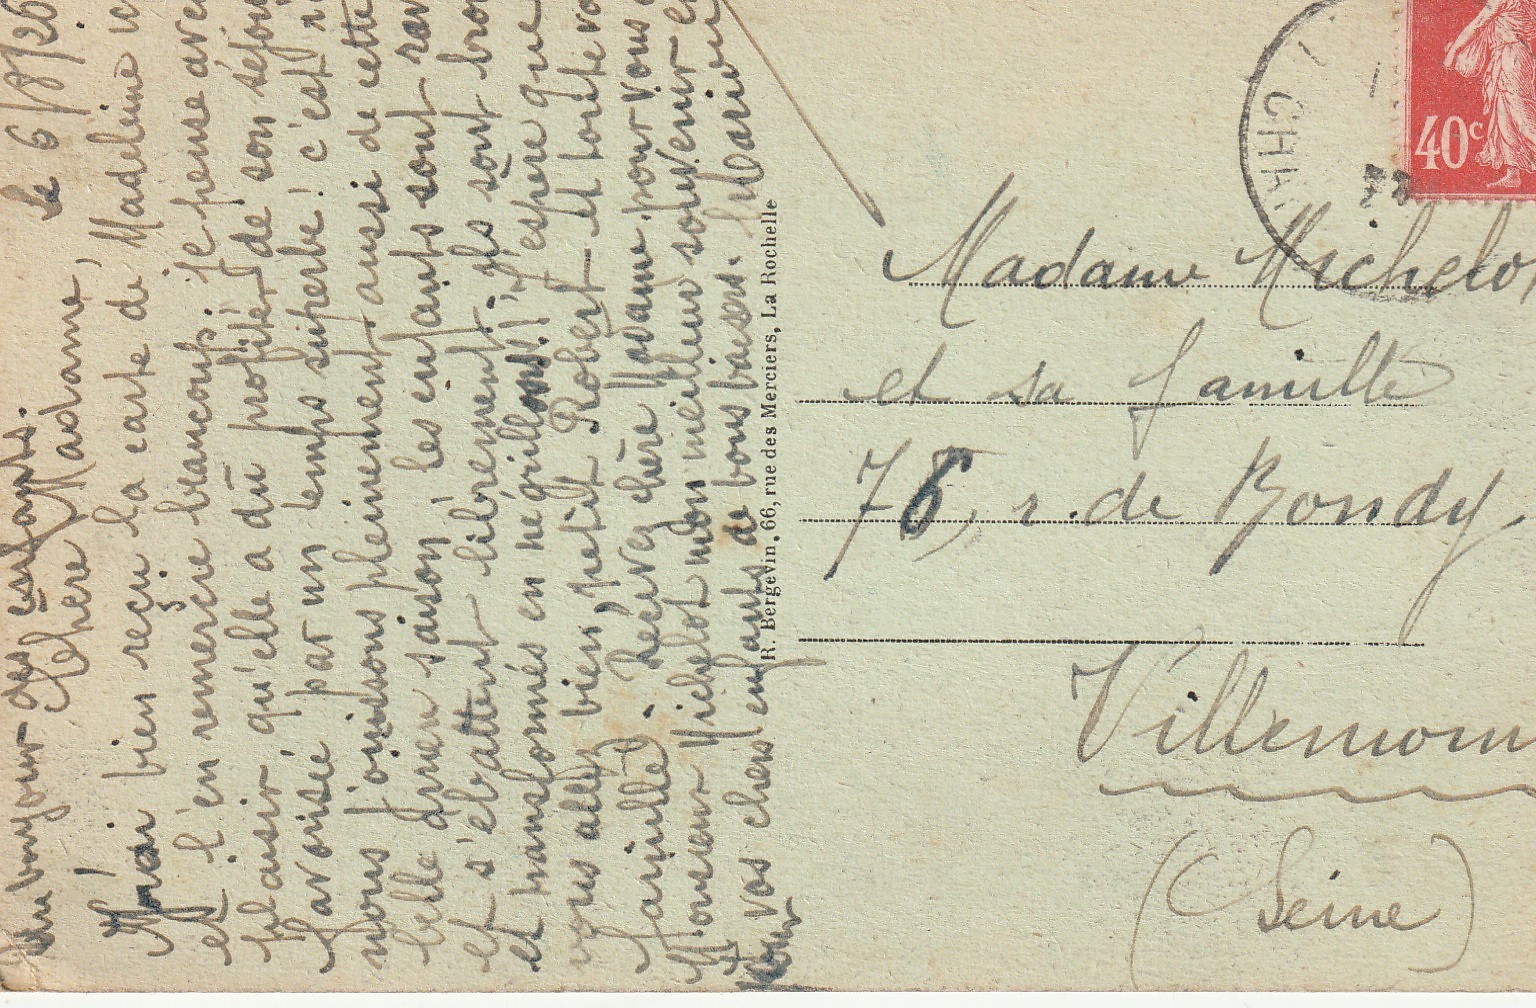 le 6/8/26
un bonjour des enfants.
Chère Madame,
J'ai bien reçu la carte de Madeleine
et l'en remercie beaucoup. Je pense
plaisir, qu'elle a dû profiter de son séjour
favorisée par un temps superbe! c'est
nous jouissons pleinement aussi de cette
belle saison, les enfants sont
et s'ébattent librement. Ils sont
et transformés en négrillons!! J'espère que
vous allez bien, petit Robert et toute
famille. Recevez chère Madame pour vous
Monsieur Michelot mon meilleur souvenir
et vos chers enfants de bons baisers.
pour
R. Bergevin, 66, rue des Merciers, La Rochelle
CHA
40c
Madame Michelot
et sa famille
76, r. de Bondy,
Villemom
(Seine)